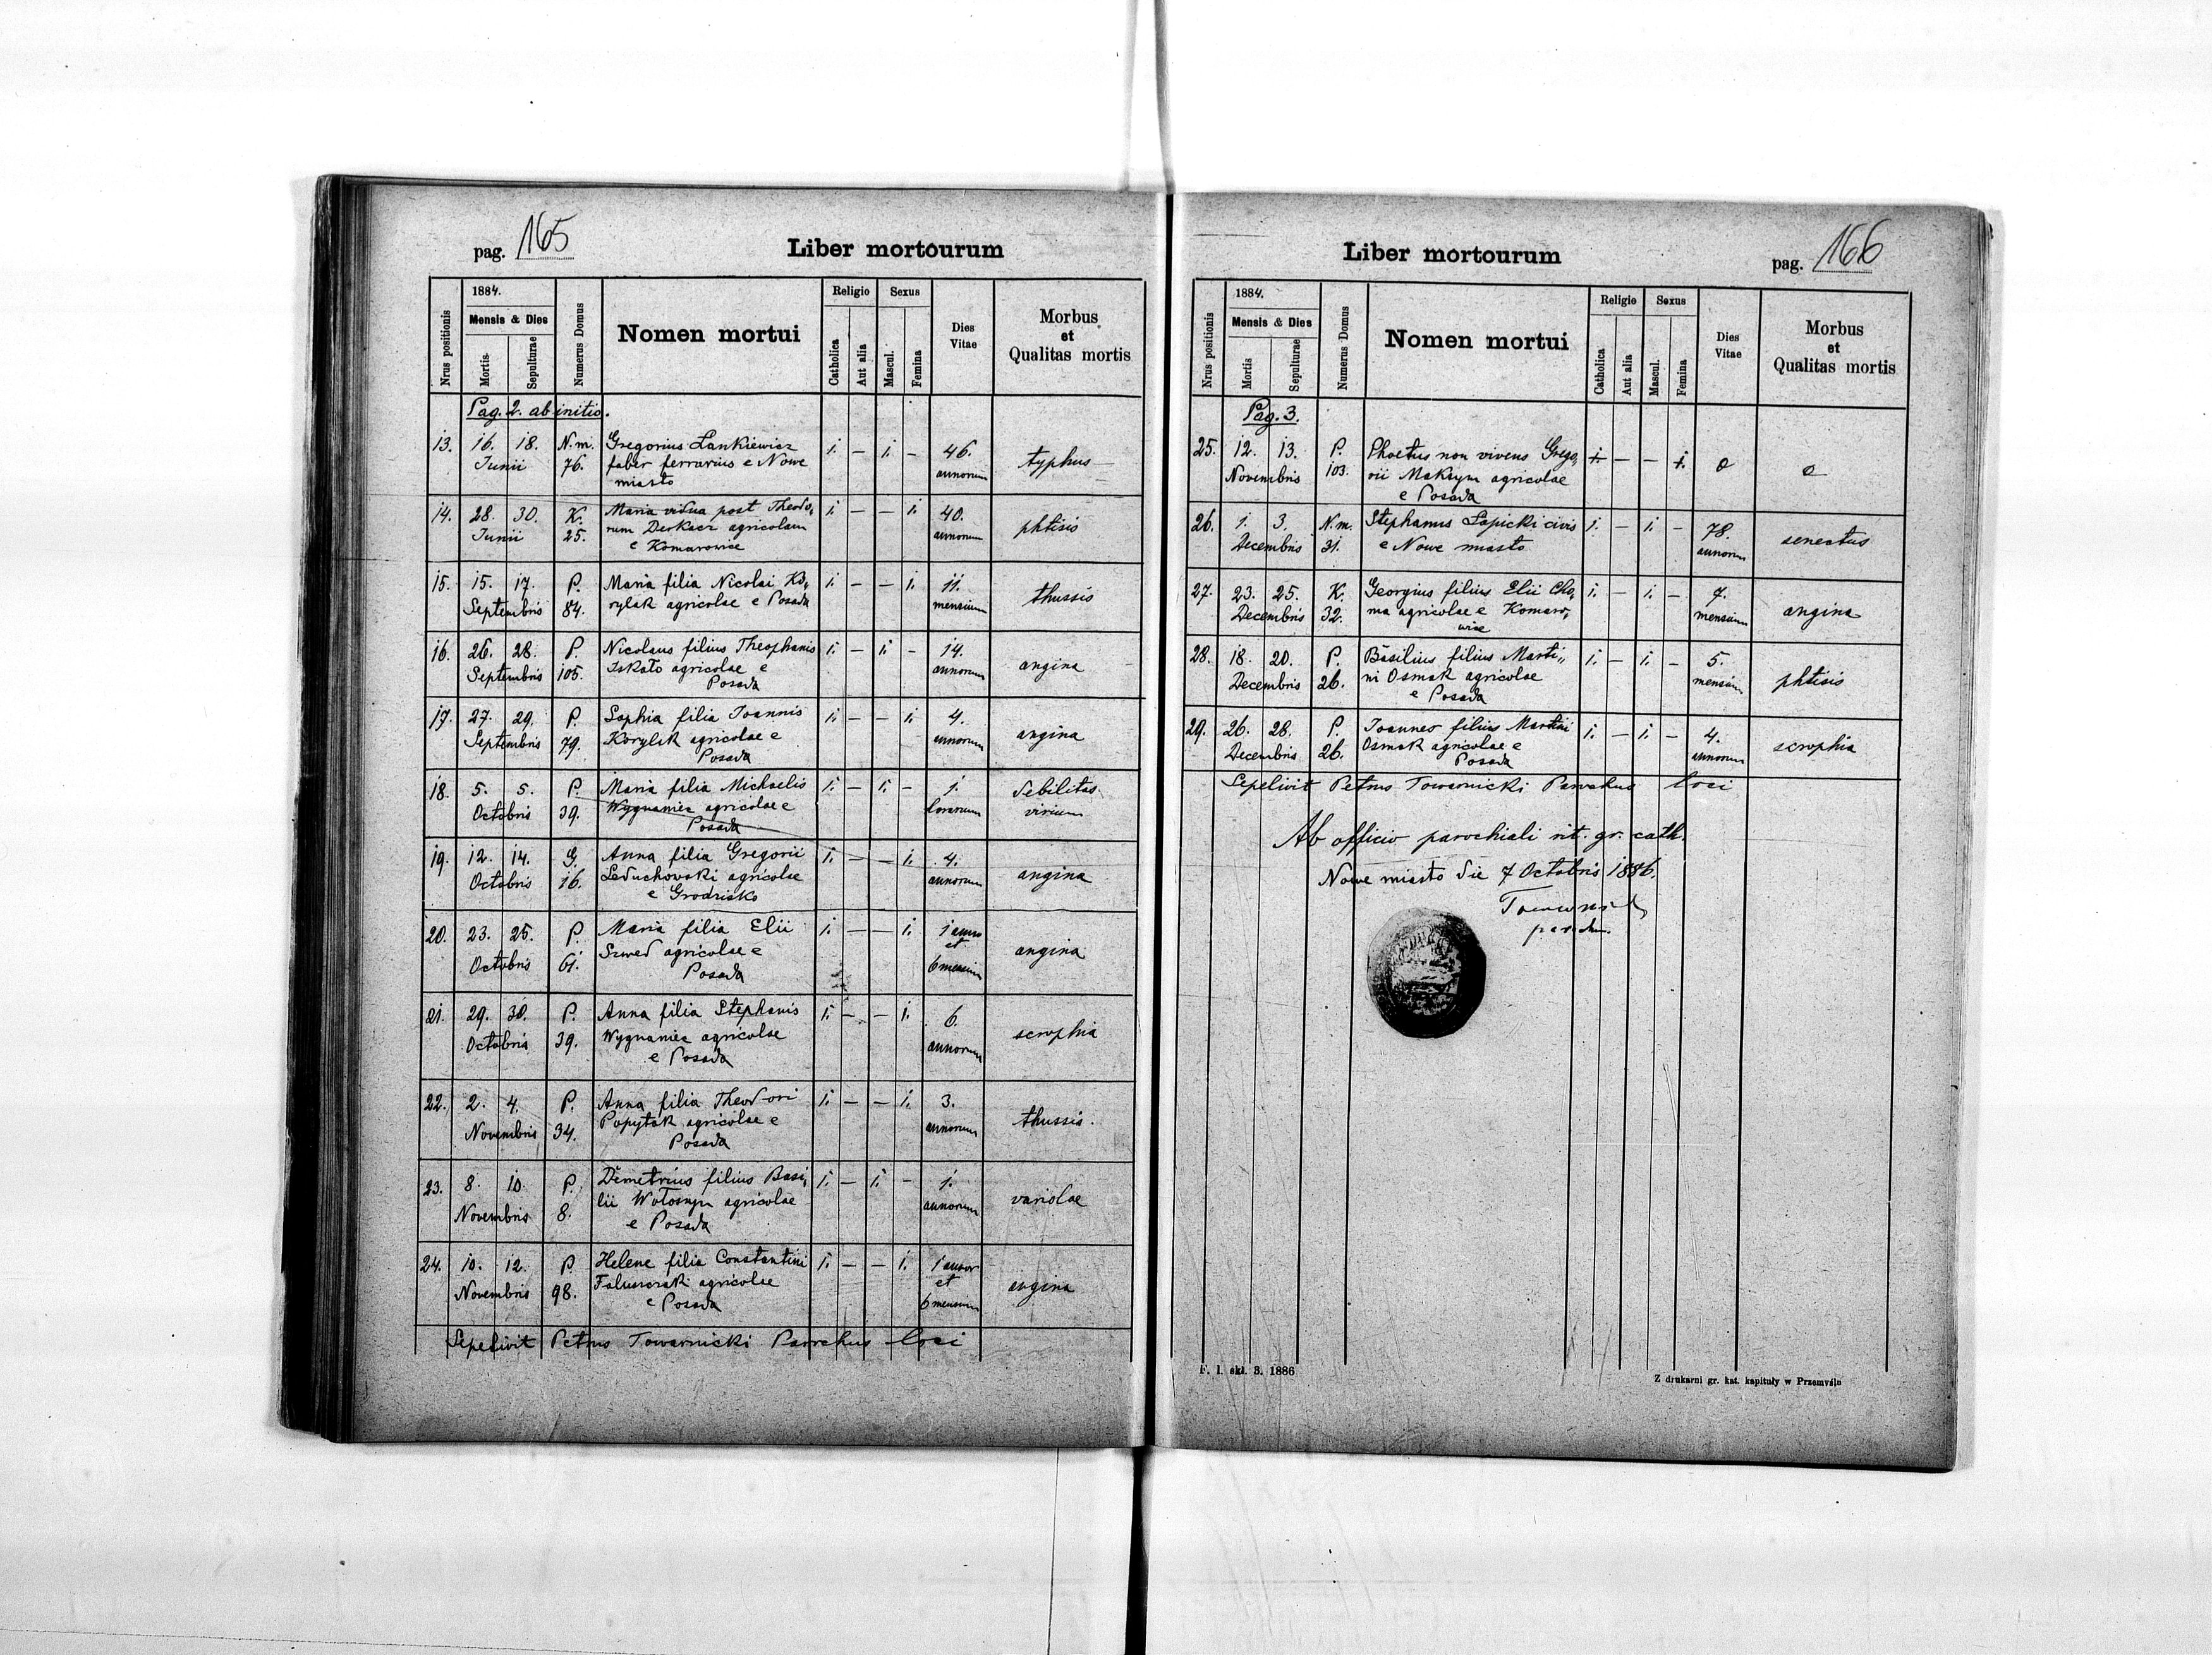 pag. 165
Liber mortourum
Nrus positionis
1884.
Mensis & Dies
Mortis
Sepulturae
Numerus Domus
Nomen mortui
Religio
Catholica
Aut alia
Sexus
Mascul.
Femina
Dies
Vitae
Morbus
et
Qualitas mortis
Pag. 2. ab initio.
13. 16. 18. N.m. Gregorius Lankiewicz 1. — 1. — 46. typhus
Junii 76. faber ferrarius e Nowe annorum
miasto
14. 28. 30. K. Maria vidua post Theodo„ 1. — — 1. 40. phtisis
Junii 25. rum Derkacz agricolam annorum
e Komarowice
15. 15. 17. P. Maria filia Nicolai Ko„ 1. — — 1. 11. thussis
Septembris 84. rylak agricolae e Posada mensium
16. 26. 28. P. Nicolaus filius Theophanis 1. — 1. — 14. angina
Septembris 105. Iskało agricolae e annorum
Posada
17. 27. 29. P. Sophia filia Joannis 1. — — 1. 4. angina
Septembris 79. Korylak agricolae e annorum
Posada
18. 5. 5. P. Maria filia Michaelis 1. — 1. — 1. debilitas
Octobris 39. Wygnaniec agricolae e horarum virium
Posada
19. 12. 14. G. Anna filia Gregorii 1. — — 1. 4. angina
Octobris 16. Leduchowski agricolae annorum
e Grodzisko
20. 23. 25. P. Maria filia Elii 1. — — 1. 1 anno
et
Octobris 61. Szwed agricolae e 6 mensium angina
Posada
21. 29. 30. P. Anna filia Stephanis 1. — — 1. 6. scrophia
Octobris 39. Wygnaniec agricolae annorum
e Posada
22. 2. 4. P. Anna filia Theodori 1. — — 1. 3. thussis.
Novembris 34. Popytak agricolae e annorum
Posada
23. 8. 10. P. Demetrius filius Basi„ 1. — 1. — 1. variolae
Novembris 8. lii Wołoszyn agricolae annorum
e Posada
24. 10. 12. P. Helene filia Constantini 1. — — 1. 1 annor
et
Novembris 98. agricolae 6 mensium angina
e Posada
Sepelivit Petrus Towarnicki Parochus loci
Liber mortourum
pag. 166
Nrus positionis
1884.
Mensis & Dies
Mortis
Sepulturae
Numerus Domus
Nomen mortui
Religio
Catholica
Aut alia
Sexus
Mascul.
Femina
Dies
Vitae
Morbus
et
Qualitas mortis
Pag. 3.
25. 12. 13. P. Phoetus non vivens Grego„ 1. — — 1. 0 0
Novembris 103. rii Maksym agricolae
e Posada
26. 1. 3. N.m. Stephanus Łapicki civis 1. — 1. — 78. senectus
Decembris 31. e Nowe miasto annorum
27. 23. 25. K. Georgius filius Elii Cho„ 1. — 1. — 7. angina
Decembris 32. ma agricolae e Komaro„ mensium
wice
28. 18. 20. P. Basilius filius Marti„ 1. — 1. — 5. phtisis
Decembris 26. ni Osmak agricolae mensium
e Posada
29. 26. 28. P. Joannes filius Martini 1. — 1. — 4. scrophia
Decembris 26. Osmak agricolae e annorum
Posada
Sepelivit Petrus Towarnicki Parochus loci
Ab officio parochiali rit. gr. cath.
Nowe miasto die 7 Octobris 1886.
Towarnicki
paroch.
F. 1. skł. 3. 1886
Z drukarni gr. kat. kapituły w Przemyślu